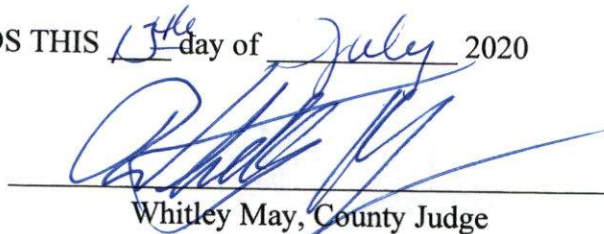 OS THIS 13th day of July 2020
Whitley May, County Judge